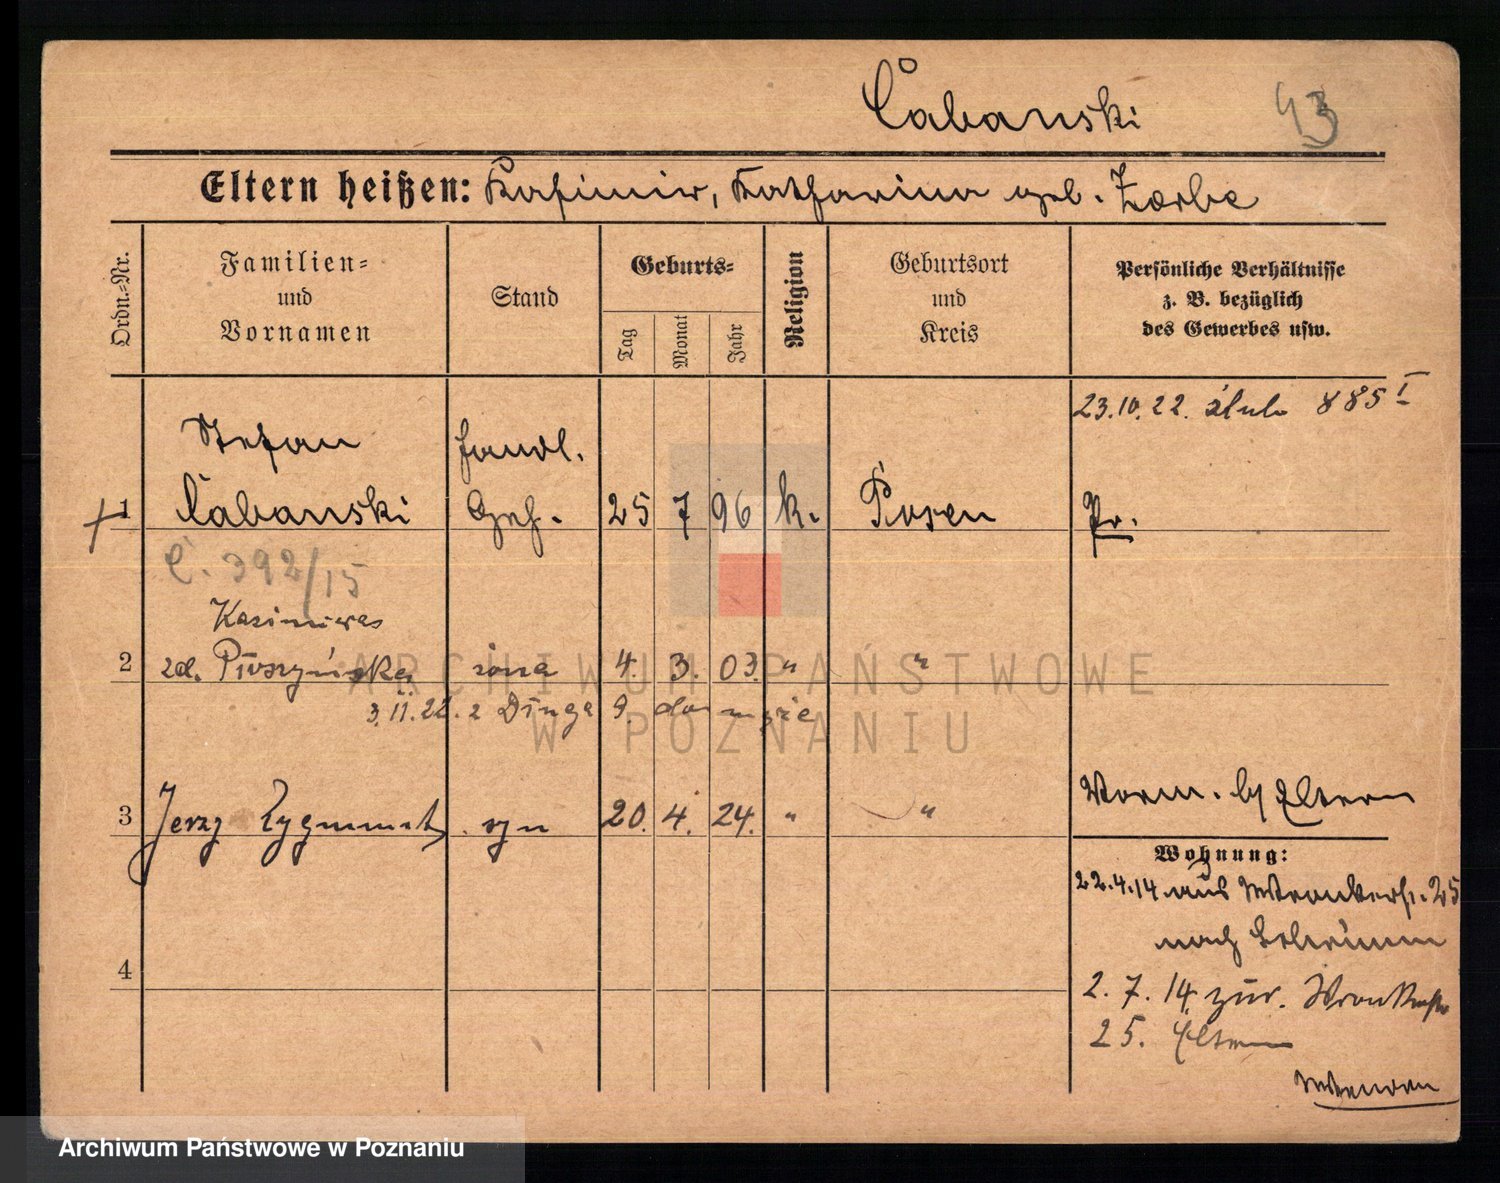 Cabanski 43
Eltern heißen: Kasimir, Katharina geb. Zarbe
Ordn.=Nr.
Familien=
und
Vornamen
Stand
Geburts=
Tag
Monat
Jahr
Religion
Geburtsort
und
Kreis
Persönliche Verhältnisse
z. B. bezüglich
des Gewerbes usw.
23.10.22. ślub 885 I
Stefan Handl.
1 Cabanski Geh. 25 7 96 k. Posen Pr.
C. 392/15
Kazimiera
2 zd. żona 4. 3. 03. " "
3.11.22. z Długa 9. do
3 Jerzy Zygmunt syn 20. 4. 24. " "
Vorm. Eltern
Wohnung:
22.4.14 aus Wronkerstr. 25
nach
2. 7. 14 zur. Wronkerstr
25. Eltern
ARCHIWUM PAŃSTWOWE
W POZNANIU
Archiwum Państwowe w Poznaniu